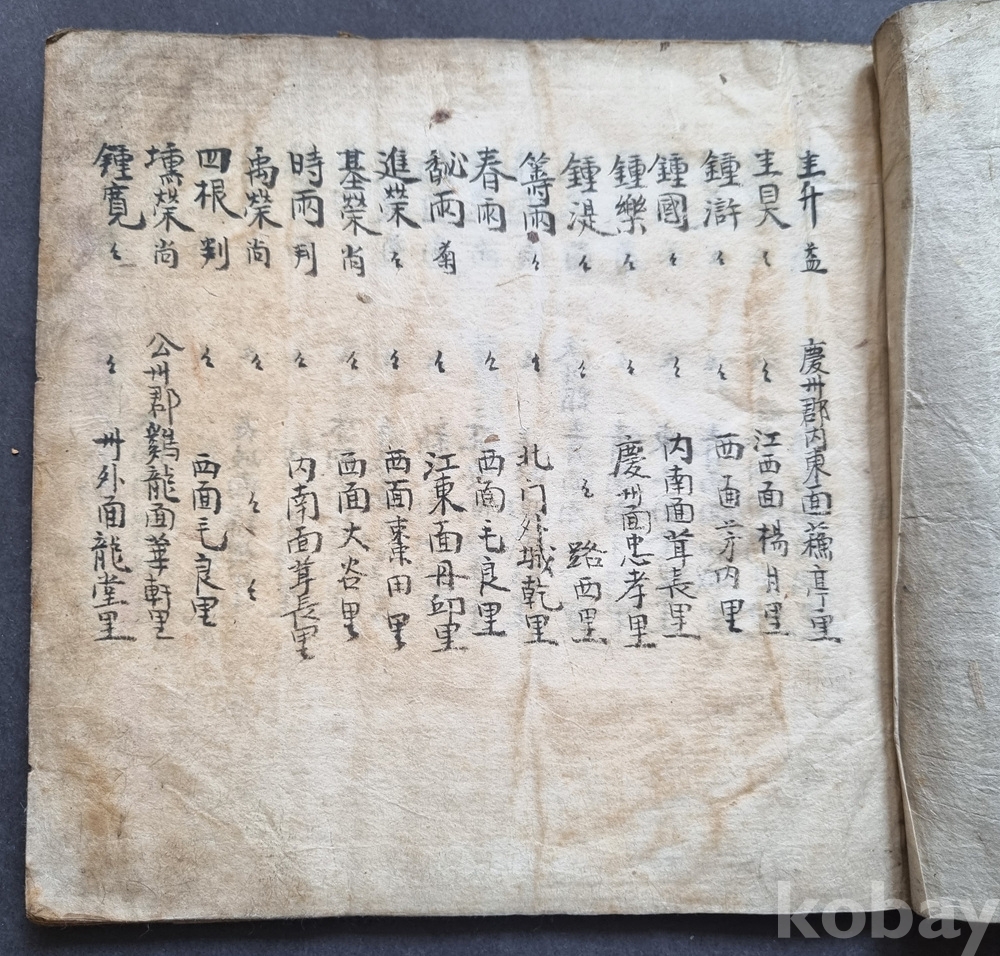 圭升 益 慶州郡內東面蘓亭里
圭昊 〻 〻 江西面楊月里
鍾滸 〻 〻 西面芳内里
鍾國 〻 〻 内南面茸長里
鍾樂 〻 〻 慶州面忠孝里
鍾湜 〻 〻 〻 路西里
籌雨 〻 〻 北门外城乾里
春雨 〻 西面毛良里
馝雨 菊 〻 江東面丹邱里
進榮 〻 〻 西面棗田里
基榮 尚 〻 西面大谷里
時雨 判 〻 内南面茸長里
禹榮 尚 〻 〻 〻
四根 判 〻 西面毛良里
壎榮 尚 公州郡鷄龍面華軒里
鍾寬 〻 〻 州外面龍堂里
kobay